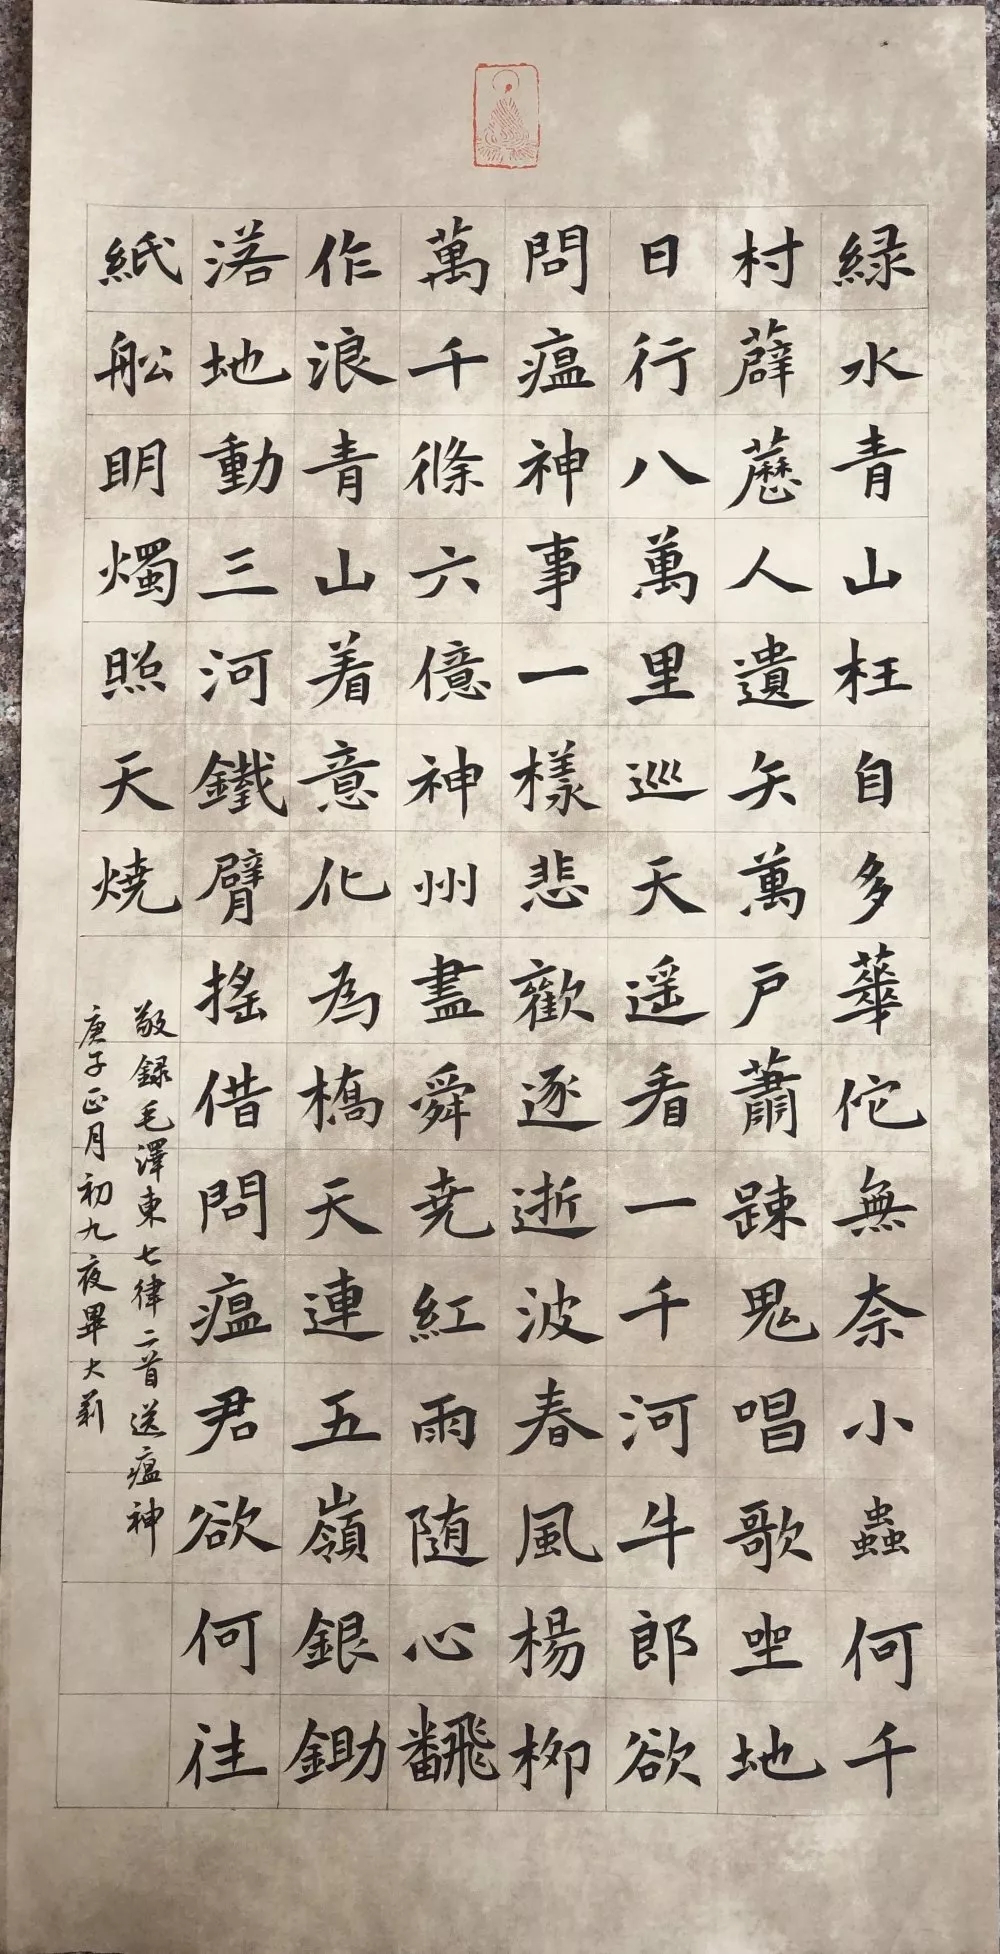 緑水青山枉自多華佗無奈小蟲何千
村薜藶人遺矢萬戶蕭踈鬼唱歌坐地
日行八萬里巡天遥看一千河牛郎欲
問瘟神事一樣悲歡逐逝波春風楊柳
萬千條六億神州盡舜尭紅雨随心飜
作浪青山着意化為橋天連五嶺銀鋤
落地動三河鐵臂搖借問瘟君欲何往
紙船明燭照天燒
敬録毛澤東七律二首送瘟神
庚子正月初九夜畢大莉